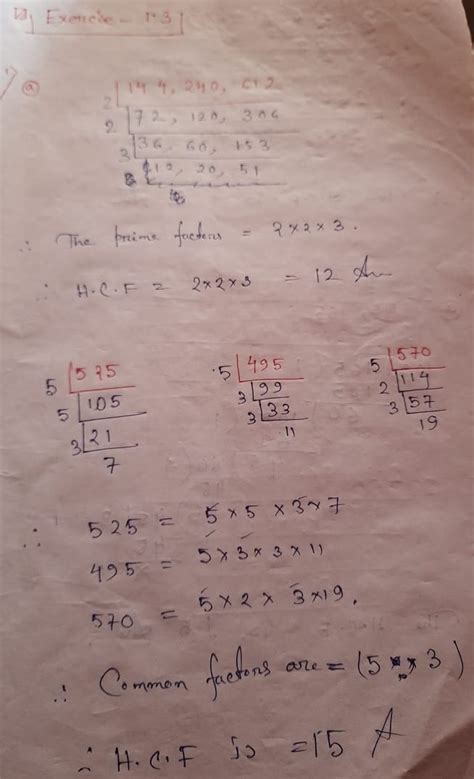 Exercise - 1.3
1) (a)
2 | 144, 240, 612
2 | 72, 120, 306
3 | 36, 60, 153
12, 20, 51
∴ The prime factors = 2×2×3.
∴ H.C.F = 2×2×3 = 12 An
5 | 525
5 | 105
3 | 21
7
5 | 495
3 | 99
3 | 33
11
5 | 570
2 | 114
3 | 57
19
∴ 525 = 5×5×3×7
495 = 5×3×3×11
570 = 5×2×3×19.
∴ Common factors are = (5 × 3)
∴ H.C.F is = 15 A